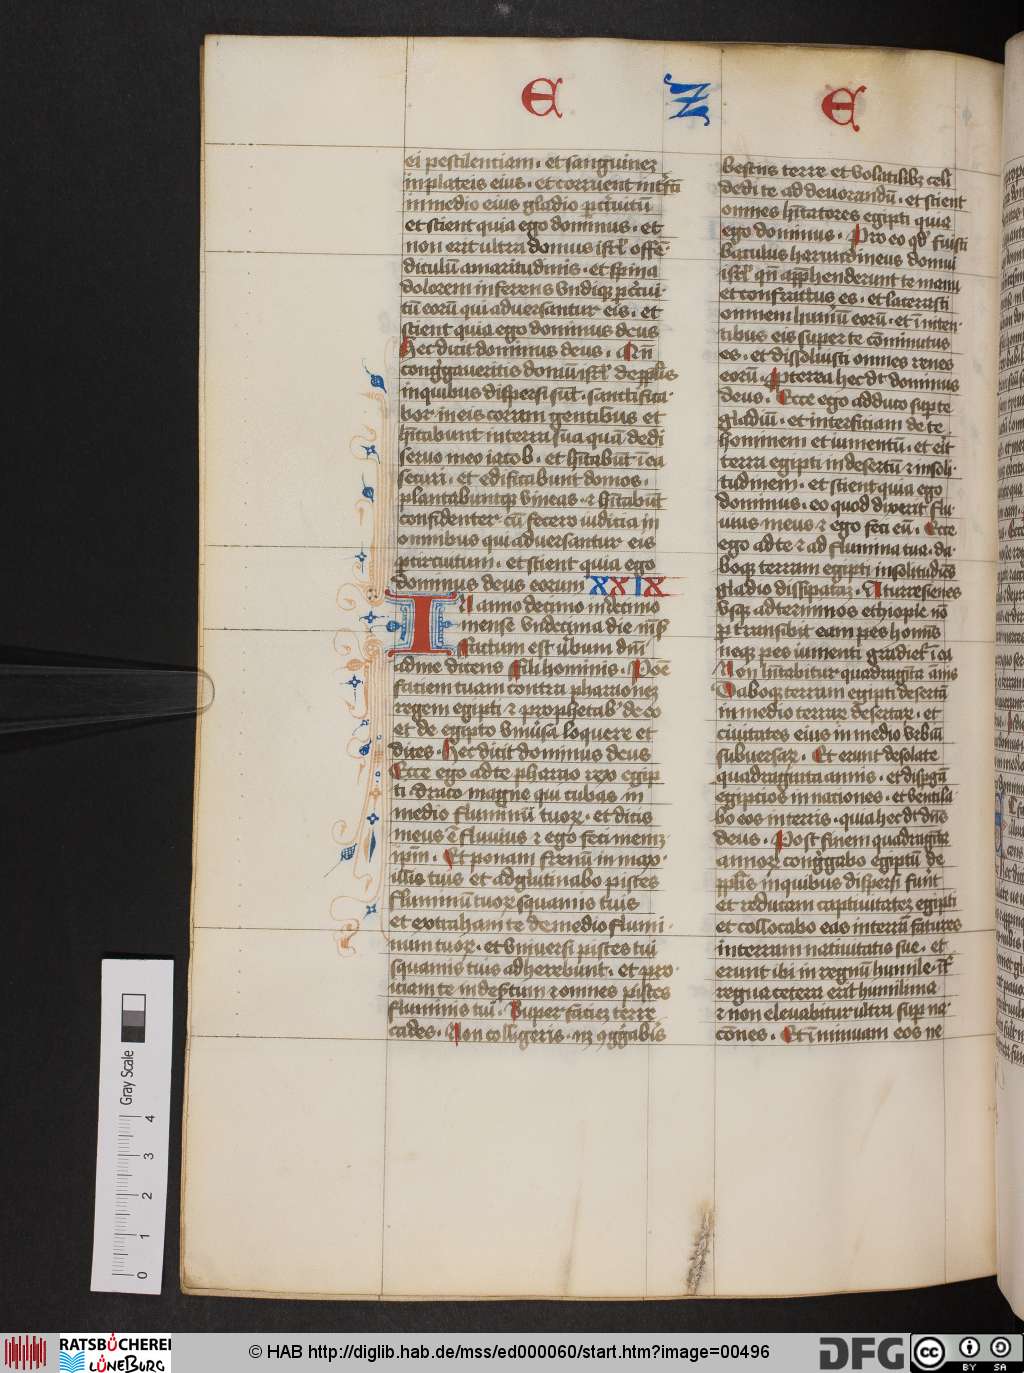 E Z E
ei pestilentiam · et sanguinez
in plateis eius · et corruent int̄fc̄i
in medio eius gladio p̲ circuitū
et scient quia ego dominus · et
non erit ultra domui isrl̄ offē
diculū amaritudinis · et spina
dolorem inferens vndiqꝫ p̲ circui
tū eorū qui aduersantur eis · et
scient quia ego dominus deus
Hec dicit dominus deus · Qn̄
congͣgauero domū isrl̄ de ppl̄is
in quibus dispersi sūt · sanctifica
bor in eis coram gentibus et
hītabunt in terra sua quā dedi
seruo meo iacob · et hītabūt ī ea
securi · et edificabunt domos ·
plantabuntqꝫ vineas · ⁊ hītabūt
confidenter cū fecero iudicia in
omnibus qui aduersantur eis
p̲ circuitum · et scient quia ego
dominus deus eorum XXIX
IN anno decimo in decimo
mense vndecima die mēs
factum est ūbum dnī
ad me dicens Fili hominis · Pone
faciem tuam contra pharaonez
regem egipti ⁊ prophetab̄ de eo
et de egipto vniūsa loquere et
dices · Hec dicit dominus deus
Ecce ego ad te pharao rex egip
ti · draco magne qui cubas in
medio fluminū tuoꝝ · et dicis
meus ē fluuius ⁊ ego feci memꝫ
ip̄m · Et ponam frenū in max
illis tuis et adglutinabo pisces
fluminū tuoꝝ squamis tuis
et extraham te de medio flumi
num tuoꝝ · et vniuersi pisces tui
squamis tuis adherebunt · et pro
iciam te in desertum ⁊ omnes pisces
fluminis tui · Super faciez terre
cades · Non colligeris · nꝫ ꝯgͣgabis
bestiis terre et volatilibꝫ celi
dedi te ad deuorandū · et scient
omnes hītatores egipti quia
ego dominus · Pro eo qd̄ fuisti
baculus harundineus domui
isrl̄ qn̄ app̲henderunt te manu
et confractus es · et lacerasti
omnem humeū eorū · et ī niten
tibus eis super te cōminutus
es · et dissoluisti omnes renes
eorū · Pterea hec dt̄ dominus
deus · Ecce ego adduco sup̲ te
gladiū · et interficiam de te
hominem et iumentū · et erit
terra egipti in desertū ⁊ insoli
tudinem · et scient quia ego
dominus · eo quod dixerit flu
uius meus ⁊ ego feci eū · Ecce
ego ad te ⁊ ad flumina tua · da
boqꝫ terram egipti in solitudīes
gladio dissipataꝫ · A turre sienes
vsqꝫ ad terminos ethiopie nō
p̲transibit eam pes homīs
neqꝫ pes iumenti gradiet̄ ī ea
Non hītabitur quadragīta ānis
Daboqꝫ terram egipti desertā
in medio terrar desertar · et
ciuitates eius in medio vrbiū
subuersaꝝ · Et erunt desolate
quadraginta annis · et disp̲gā
egipcios in naciones · et ventila
bo eos in terris · quia hec dt̄ dn̄s
deus · Post finem quadragīta
annoꝝ congͣgabo egiptū de
pplīs in quibus dispersi fuīt
et reducam captiuitatez egipti
et collocabo eos in terra fatures
in terram natiuitatis sue · et
erunt ibi in regnū humile · īt̄
regna cetera erit humilima
⁊ non eleuabitur ultra sup̲ na
cōnes · Et īminuam eos ne
Gray Scale
4
3
2
1
0
RATSBÜCHEREI
LÜNEBURG
© HAB http://diglib.hab.de/mss/ed000060/start.htm?image=00496
DFG
cc
BY SA